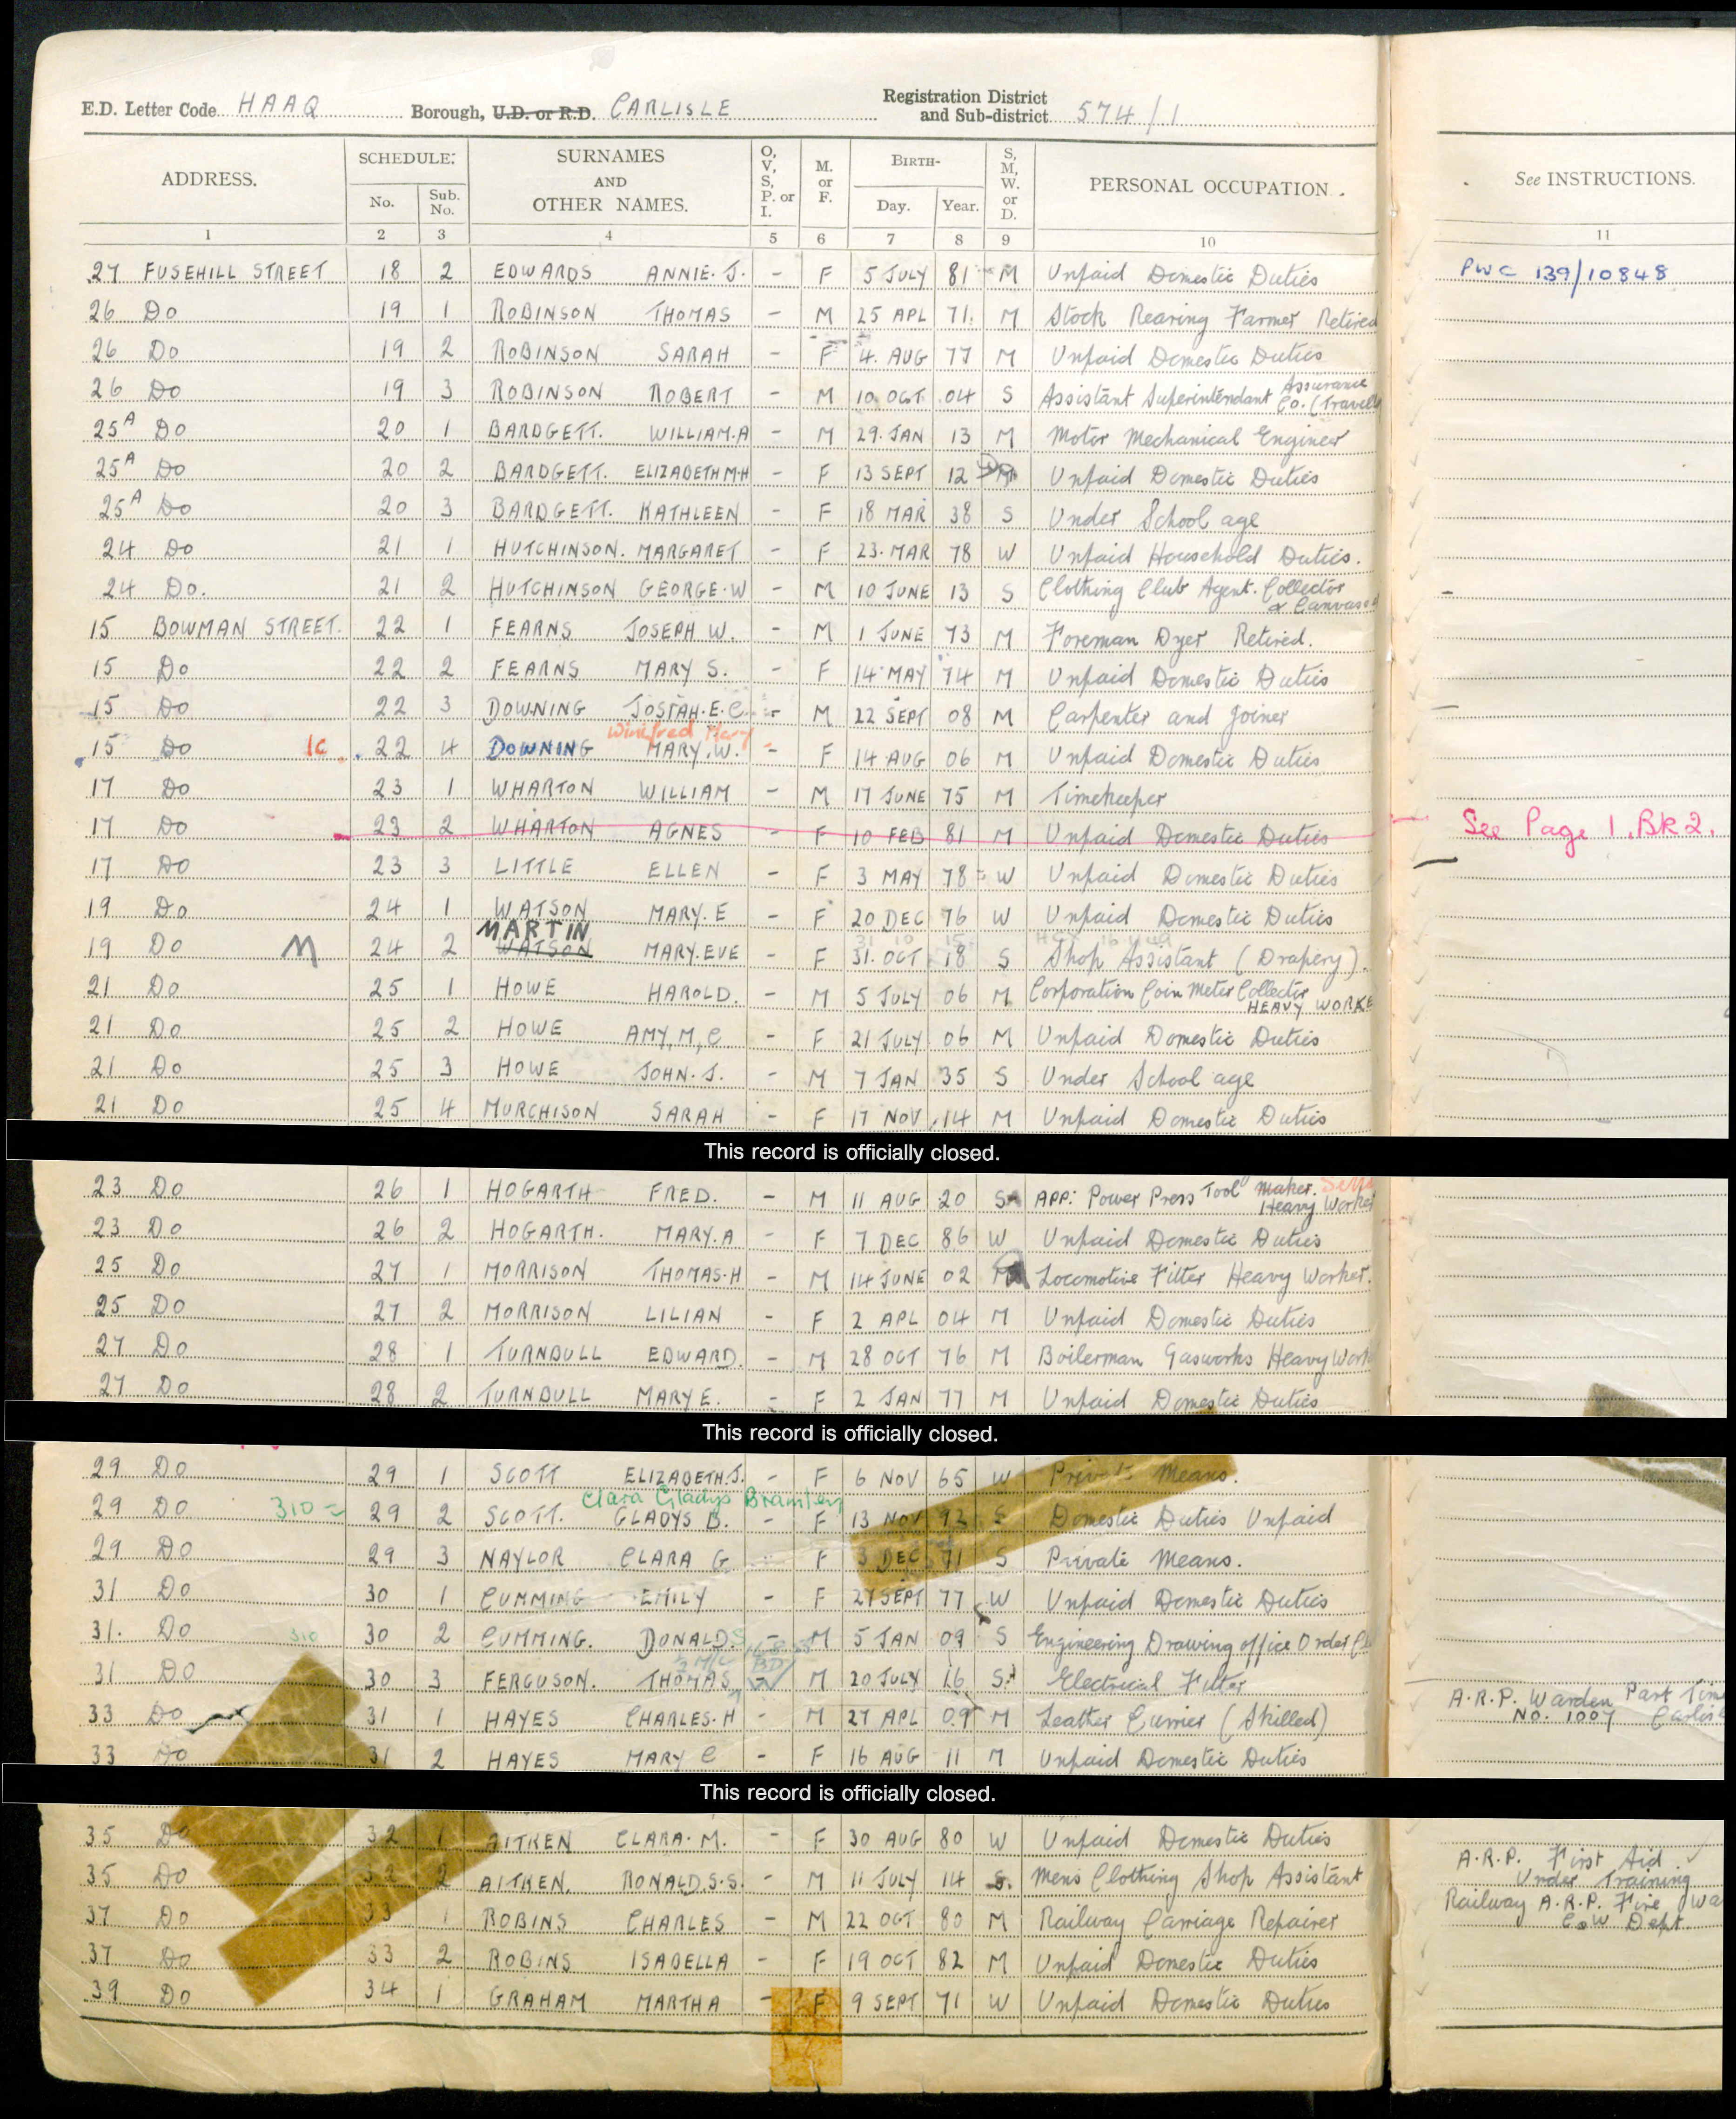 E.D. Letter Code HAAQ Borough, U.D. or R.D. CARLISLE Registration District and Sub-district 574/1
ADDRESS. SCHEDULE: SURNAMES AND OTHER NAMES. O, V, S, P. or I. M. or F. BIRTH- S, M, W. or D. PERSONAL OCCUPATION. See INSTRUCTIONS.
No. Sub. No. Day. Year.
1 2 3 4 5 6 7 8 9 10 11
27 FUSEHILL STREET 18 2 EDWARDS ANNIE. J. - F 5 JULY 81 M Unpaid Domestic Duties PWC 139/10848
26 Do 19 1 ROBINSON THOMAS - M 25 APL 71 M Stock Rearing Farmer Retired
26 Do 19 2 ROBINSON SARAH - F 4. AUG 77 M Unpaid Domestic Duties
26 Do 19 3 ROBINSON ROBERT - M 10 OCT 04 S Assistant Superintendant Assurance Co. (Travell
25A Do 20 1 BARDGETT. WILLIAM.A - M 29. JAN 13 M Motor Mechanical Engineer
25A Do 20 2 BARDGETT. ELIZABETH M.H - F 13 SEPT 12 M Unpaid Domestic Duties
25A Do 20 3 BARDGETT. KATHLEEN - F 18 MAR 38 S Under School age
24 Do 21 1 HUTCHINSON. MARGARET - F 23. MAR 78 W Unpaid Household Duties.
24 Do. 21 2 HUTCHINSON GEORGE.W - M 10 JUNE 13 S Clothing Club Agent. Collector & Canvasser
15 BOWMAN STREET. 22 1 FEARNS JOSEPH W. - M 1 JUNE 73 M Foreman Dyer Retired.
15 Do 22 2 FEARNS MARY S. - F 14 MAY 74 M Unpaid Domestic Duties
15 Do 22 3 DOWNING JOSIAH.E.C. - M 22 SEPT 08 M Carpenter and Joiner
Winifred Mary
15 Do 1C 22 4 DOWNING MARY.W. - F 14 AUG 06 M Unpaid Domestic Duties
17 Do 23 1 WHARTON WILLIAM - M 17 JUNE 75 M Timekeeper
17 Do 23 2 WHARTON AGNES - F 10 FEB 81 M Unpaid Domestic Duties See Page 1. Bk 2.
17 Do 23 3 LITTLE ELLEN - F 3 MAY 78 W Unpaid Domestic Duties
19 Do 24 1 WATSON MARY. E - F 20 DEC 76 W Unpaid Domestic Duties
MARTIN
19 Do M 24 2 WATSON MARY.EVE - F 31. OCT 18 S Shop Assistant (Drapery).
21 Do 25 1 HOWE HAROLD. - M 5 JULY 06 M Corporation Coin Meter Collector HEAVY WORKE
21 Do 25 2 HOWE AMY, M, C - F 21 JULY 06 M Unpaid Domestic Duties
21 Do 25 3 HOWE JOHN. J. - M 7 JAN 35 S Under School age
21 Do 25 4 MURCHISON SARAH - F 17 NOV 14 M Unpaid Domestic Duties
This record is officially closed.
23 Do 26 1 HOGARTH FRED. - M 11 AUG 20 S APP: Power Press Tool Maker. Heavy Worker
23 Do 26 2 HOGARTH. MARY.A - F 7 DEC 86 W Unpaid Domestic Duties
25 Do 27 1 MORRISON THOMAS.H - M 14 JUNE 02 M Locomotive Fitter Heavy Worker.
25 Do 27 2 MORRISON LILIAN - F 2 APL 04 M Unpaid Domestic Duties
27 Do 28 1 TURNBULL EDWARD. - M 28 OCT 76 M Boilerman Gasworks Heavy Work
27 Do 28 2 TURNBULL MARY E. - F 2 JAN 77 M Unpaid Domestic Duties
This record is officially closed.
29 Do 29 1 SCOTT ELIZABETH.J. - F 6 NOV 65 W Private Means.
Clara Gladys Bramley
29 Do 310 = 29 2 SCOTT. GLADYS B. - F 13 NOV 92 S Domestic Duties Unpaid
29 Do 29 3 NAYLOR CLARA G - F 3 DEC 71 S Private Means.
31 Do 30 1 CUMMING EMILY - F 27 SEPT 77 W Unpaid Domestic Duties
31. Do 310 30 2 CUMMING. DONALD.S - M 5 JAN 09 S Engineering Drawing office Order Cl
31 Do 30 3 FERGUSON. THOMAS - M 20 JULY 16 S Electrical Fitter
33 Do 31 1 HAYES CHARLES.H - M 27 APL 09 M Leather Currier (Skilled) A.R.P. Warden Part Tim No. 1007 Carlisle
33 Do 31 2 HAYES MARY C - F 16 AUG 11 M Unpaid Domestic Duties
This record is officially closed.
35 Do 32 1 AITKEN CLARA. M. - F 30 AUG 80 W Unpaid Domestic Duties
35 Do 32 2 AITKEN. RONALD.S.S. - M 11 JULY 14 S. Mens Clothing Shop Assistant A.R.P. First Aid Under Training
37 Do 33 1 ROBINS CHARLES - M 22 OCT 80 M Railway Carriage Repairer Railway A.R.P. Fire Wa C&W Dept.
37 Do 33 2 ROBINS ISABELLA - F 19 OCT 82 M Unpaid Domestic Duties
39 Do 34 1 GRAHAM MARTHA - F 9 SEPT 71 W Unpaid Domestic Duties